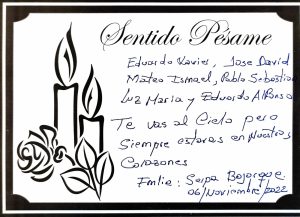 Sentido Pésame
Eduardo Xavier, Jose David
Mateo Ismael, Pablo Sebastian
Luz Maria y Eduardo Alfonso
Te vas al Cielo pero
Siempre estaras en Nuestros
Corazones
Fmlia: Serpa Bojorque
06/Noviembre/2022